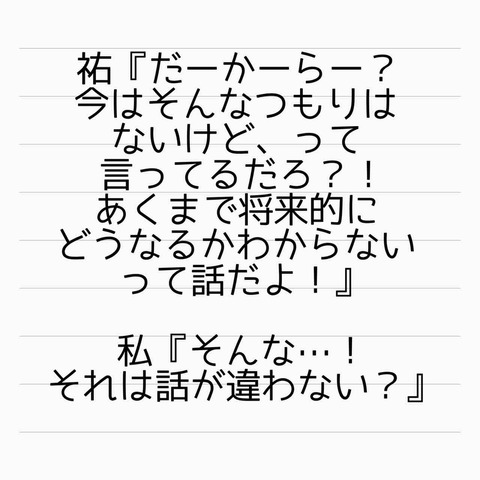 祐『だーかーらー？
今はそんなつもりは
ないけど、って
言ってるだろ？！
あくまで将来的に
どうなるかわからない
って話だよ！』
私『そんな…！
それは話が違わない？』